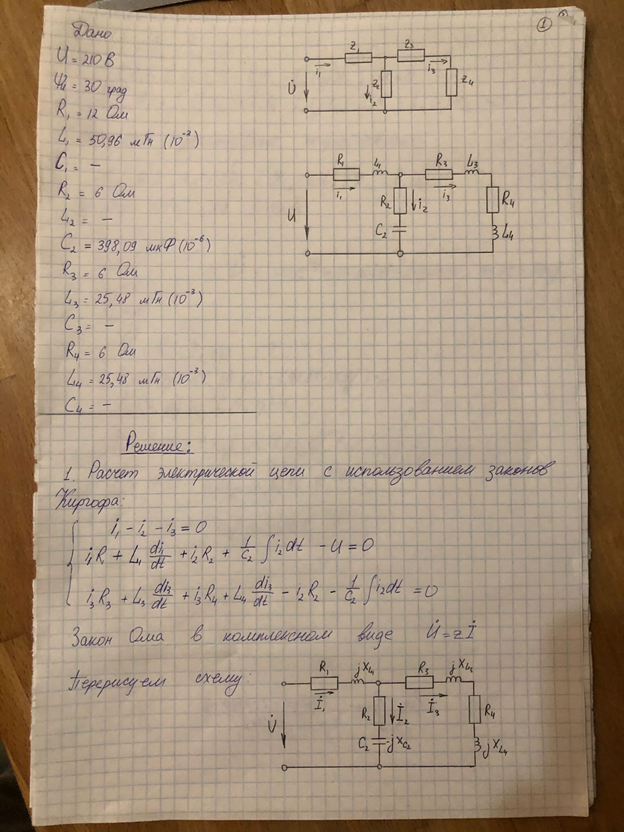 1
Дано
U = 210 В
Ψu = 30 град
R₁ = 12 Ом
L₁ = 50,96 мГн (10⁻³)
C₁ = –
R₂ = 6 Ом
L₂ = –
C₂ = 398,09 мкФ (10⁻⁶)
R₃ = 6 Ом
L₃ = 25,48 мГн (10⁻³)
C₃ = –
R₄ = 6 Ом
L₄ = 25,48 мГн (10⁻³)
C₄ = –
Z₁ Z₃
i₁ i₃
U̇ Z₂ i₂ Z₄
R₁ L₁ R₃ L₃
i₁ i₃
U R₂ i₂ R₄
C₂ L₄
Решение:
1. Расчет электрической цепи с использованием законов
Киргофа:
i₁ – i₂ – i₃ = 0
i₁R + L₁ di₁/dt + i₂R₂ + 1/C₂ ∫ i₂dt – U = 0
i₃R₃ + L₃ di₃/dt + i₃R₄ + L₄ di₃/dt – i₂R₂ – 1/C₂ ∫ i₂dt = 0
Закон Ома в комплексном виде U̇ = zİ
Перерисуем схему:
R₁ jXL₁ R₃ jXL₃
İ₁ İ₃
U̇ R₂ İ₂ R₄
C₂ -jXC₂ jXL₄